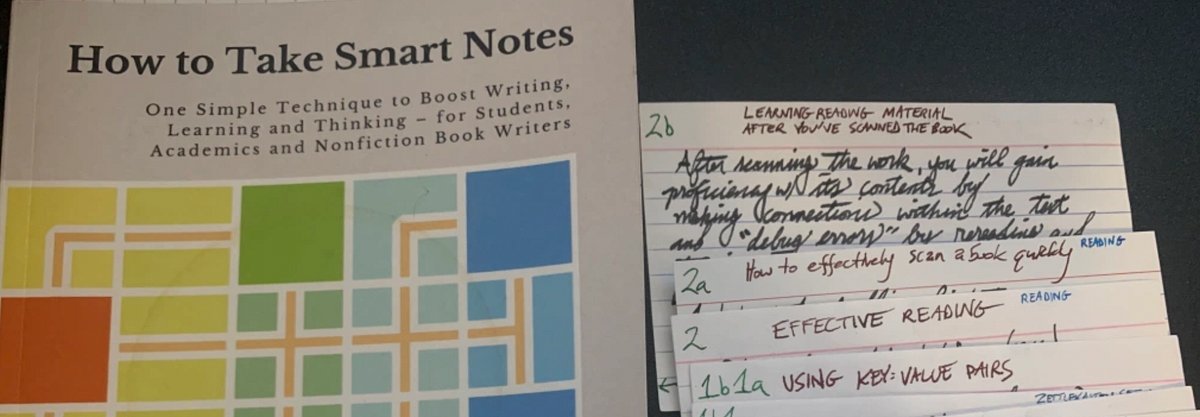 How to Take Smart Notes
One Simple Technique to Boost Writing,
Learning and Thinking – for Students,
Academics and Nonfiction Book Writers
2b
LEARNING READING MATERIAL
AFTER YOU'VE SCANNED THE BOOK
After scanning the work, you will gain
proficiency w/ its contents by
making connections within the text
and "debug errors" by rereading and
2a How to effectively scan a book quickly READING
2 EFFECTIVE READING READING
1b1a USING KEY:VALUE PAIRS